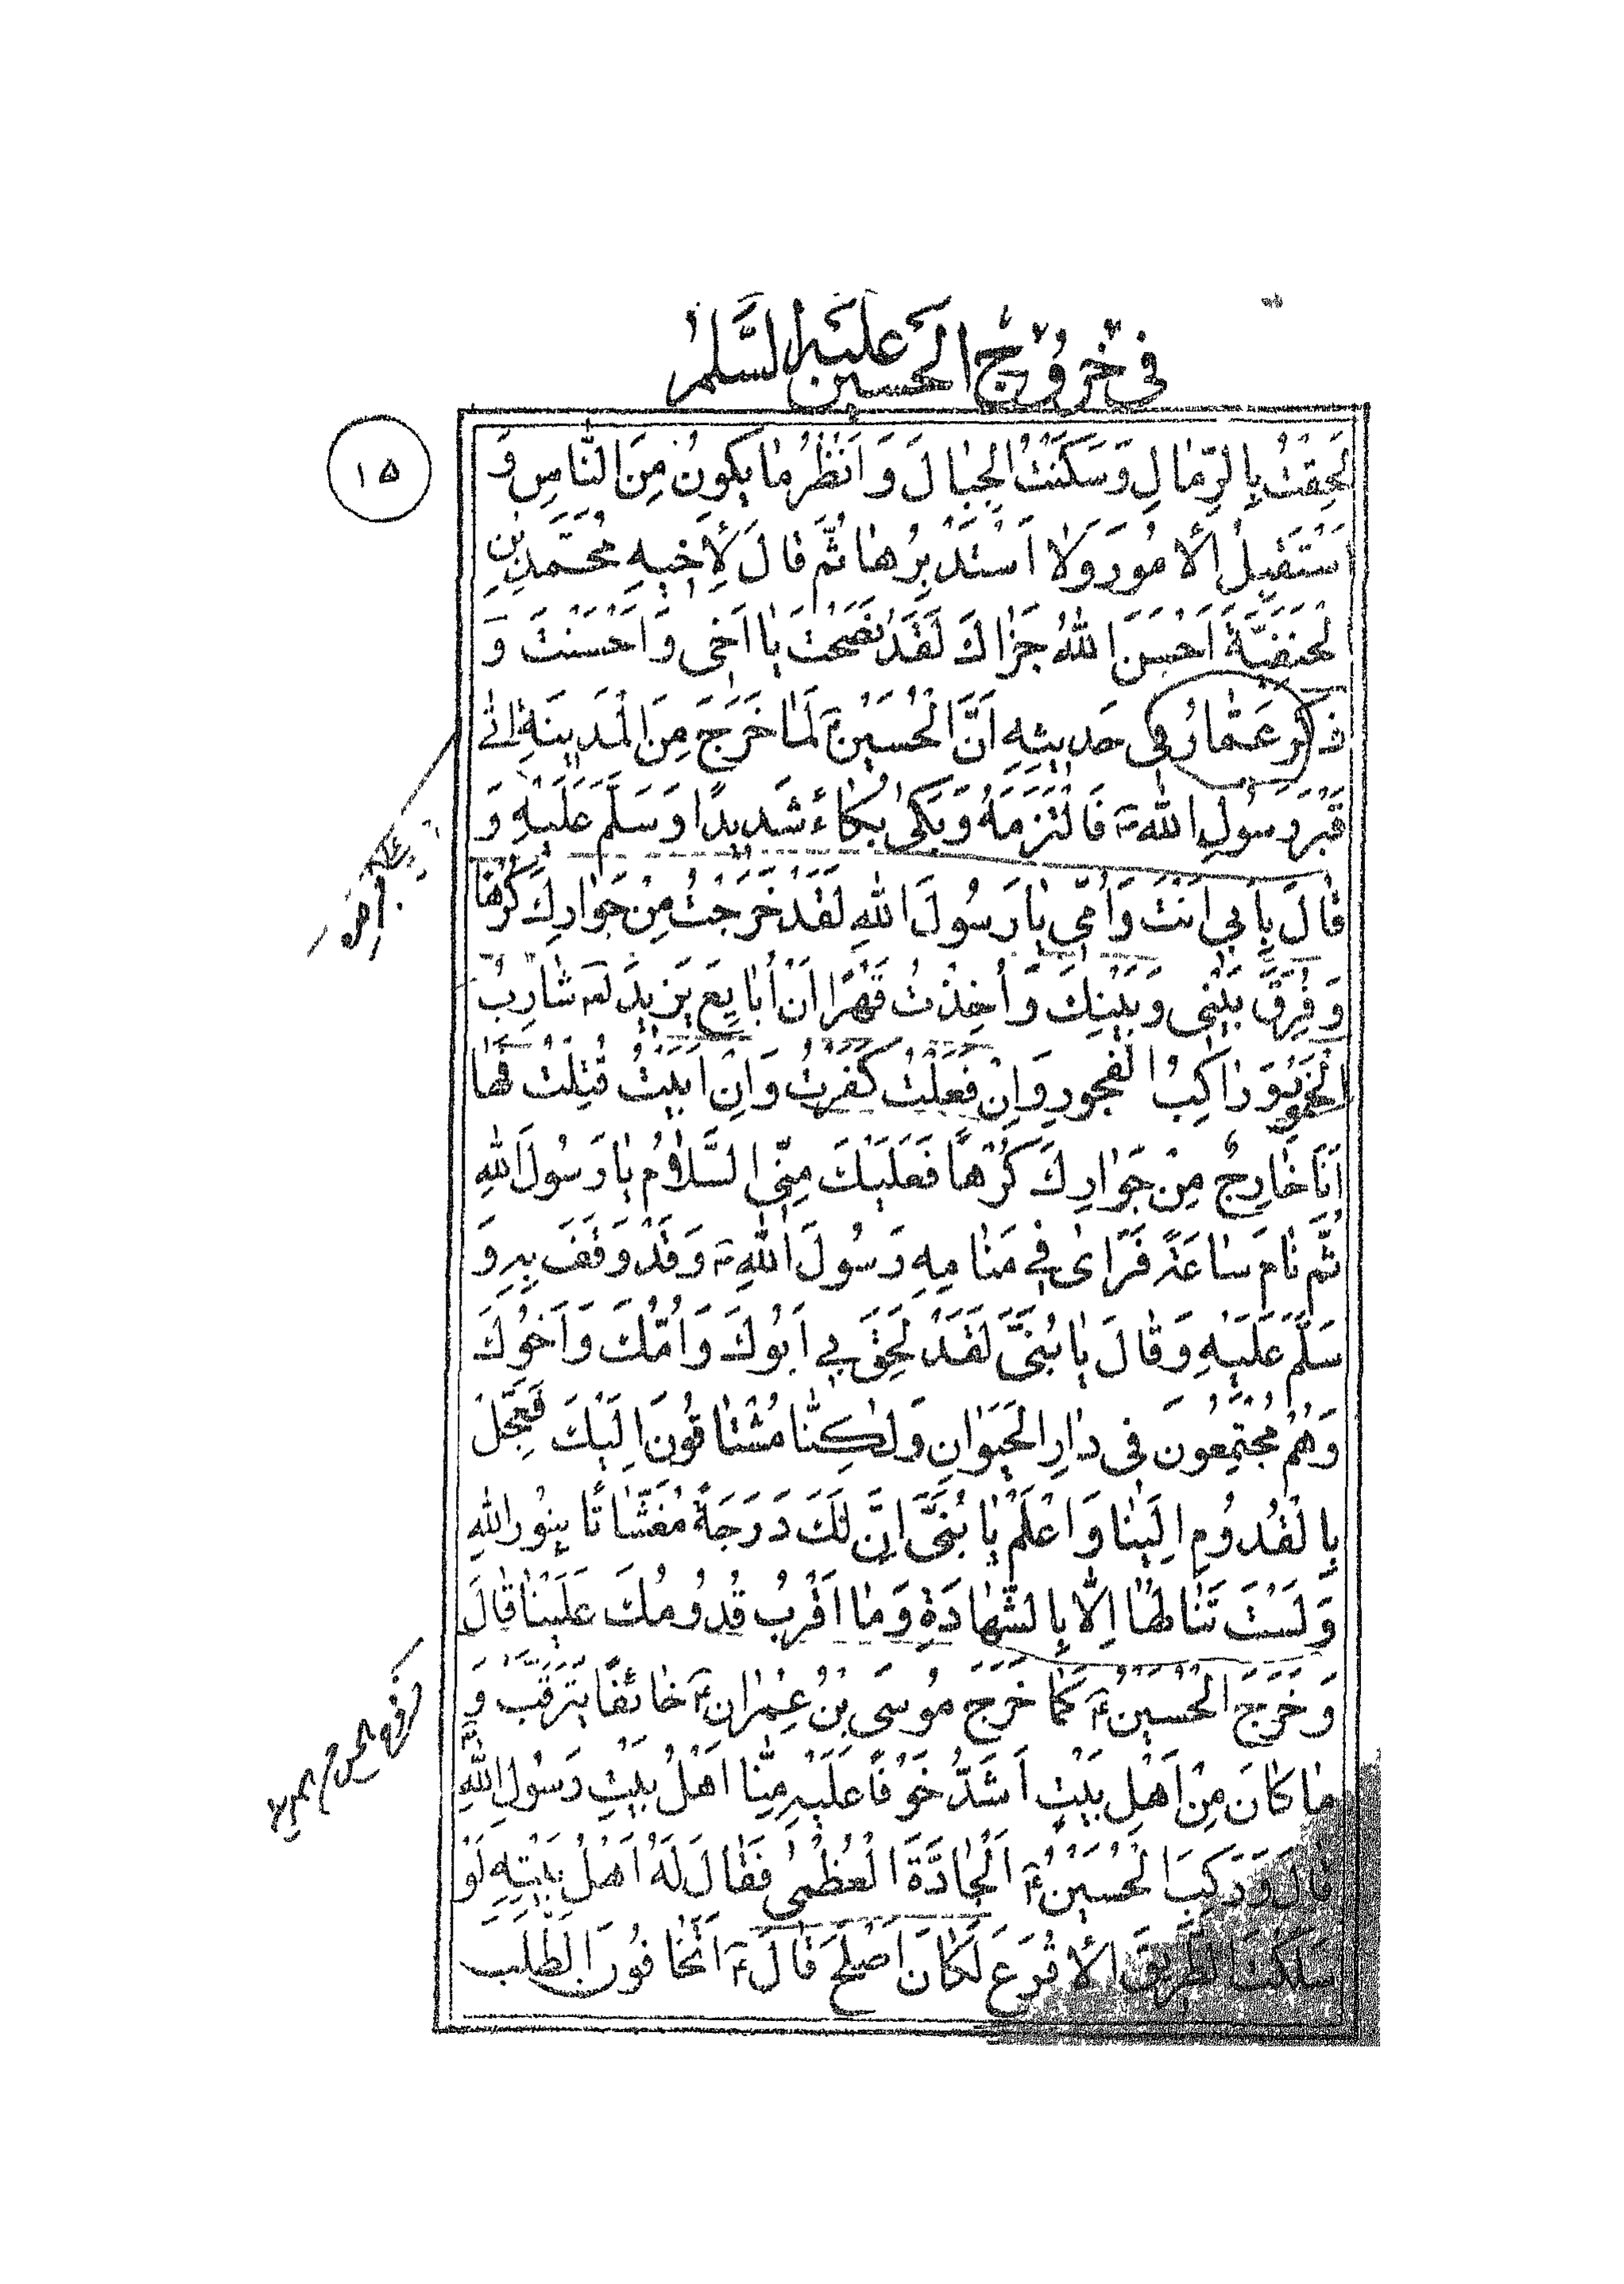 فى خُرُوجِ الحُسَينِ عَلَيهِ السَّلمُ
١٥
لَحِقْتُ بِالرِّمٰالِ وَسَكَنْتُ الجِبٰالَ وَ اَنْظُرُ مٰا يَكونُ مِنَ النّٰاسِ وَ
اَسْتَقْبِلُ الأُمُورَ وَلاٰ اَسْتَدْبِرُهٰا ثُمَّ قٰالَ لِأَخيهِ مُحَمَّدِ بْنِ
لْحَنَفِيَّةِ اَحْسَنَ اللهُ جَزٰاكَ لَقَدْ نَصَحْتَ يٰا اَخى وَ اَحْسَنْتَ وَ
ذَكَرَ عَمّٰارُ فى حَديثِهِ اَنَّ الْحُسَيْنَ ع لَمّٰا خَرَجَ مِنَ الْمَدينَةِ اَتٰى
قَبْرَ رَسُولِ اللهِ ص فَالْتَزَمَهُ وَبَكىٰ بُكٰاءً شَديدًا وَسَلَّمَ عَلَيْهِ وَ
قٰالَ بِاَبي اَنْتَ وَاُمّي يٰا رَسُولَ اللهِ لَقَدْ خَرَجْتُ مِنْ جَوٰارِكَ كُرْهًا
وَ فُرِّقَ بَيْنى وَ بَيْنِكَ وَ اُخِذْتُ قَهْرًا اَنْ اُبٰايِعَ يَزيدَ لع شٰارِبُ
الْخُمُورِ وَ رٰاكِبُ الْفُجورِ وَ اِنْ فَعَلْتُ كَفَرْتُ وَ اِنْ اَبَيْتُ قُتِلْتُ فَهٰا
اَنَا خٰارِجٌ مِنْ جَوٰارِكَ كُرْهًا فَعَلَيْكَ مِنِّى السَّلاٰمُ يٰا رَسُولَ اللهِ
ثُمَّ نٰامَ سٰاعَةً فَرَاىٰ في مَنٰامِهِ رَسُولَ اللهِ ص وَ قَدْ وَقَفَ بِهِ وَ
سَلَّمَ عَلَيْهِ وَ قٰالَ يٰا بُنَىَّ لَقَدْ لَحِقَ بي اَبُوكَ وَ اُمُّكَ وَ اَخُوكَ
وَ هُمْ مُجْتَمِعُونَ فى دٰارِ الحَيَوٰانِ وَلٰكِنّٰا مُشْتٰاقُونَ اِلَيْكَ فَعَجِّلْ
بِالْقُدُومِ اِلَيْنٰا وَ اعْلَمْ يٰا بُنَىَّ اِنَّ لَكَ دَرَجَةً مُغَشّٰاتًا بِنُورِ اللهِ
وَ لَسْتَ تَنٰالُهٰا اِلاّٰ بِالشَّهٰادَةِ وَ مٰا اَقْرَبُ قُدُومُكَ عَلَيْنٰا قٰالَ
وَ خَرَجَ الْحُسَيْنُ ع كَمٰا خَرَجَ مُوسَى بْنُ عِمْرٰانَ ع خٰائِفًا يَتَرَقَّبُ وَ
مٰا كٰانَ مِنْ اَهْلِ بَيْتٍ اَشَدُّ خَوْفًا عَلَيْهِ مِنّٰا اَهْلُ بَيْتِ رَسُولِ اللهِ
قٰالَ وَ رَكِبَ الْحُسَيْنُ ع اَلْجٰادَّةَ الْعُظْمىٰ فَقٰالَ لَهُ اَهْلُ بَيْتِهِ لَوْ
سَلَكْتَ الطَّريقَ الأَقْرَعَ لَكٰانَ اَصْلَحَ قٰالَ ع اَتَخٰافُونَ الطَّلَبَ